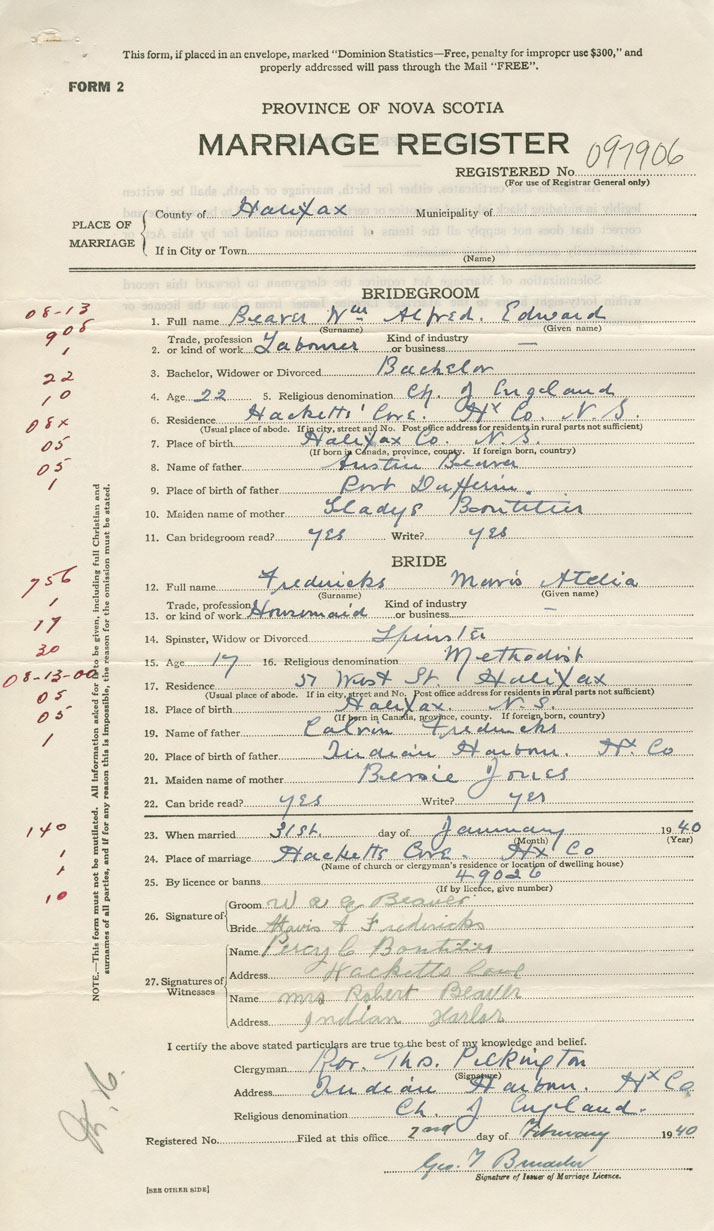 This form, if placed in an envelope, marked "Dominion Statistics—Free, penalty for improper use $300," and
properly addressed will pass through the Mail "FREE".
FORM 2
PROVINCE OF NOVA SCOTIA
MARRIAGE REGISTER
097906
REGISTERED No.
(For use of Registrar General only)
PLACE OF MARRIAGE
County of Halifax Municipality of
If in City or Town
(Name)
BRIDEGROOM
08-13
1. Full name Beaver Wm Alfred. Edward
(Surname) (Given name)
908
Trade, profession Kind of industry
2. or kind of work Labourer or business —
1
3. Bachelor, Widower or Divorced Bachelor
22
4. Age 22 5. Religious denomination Ch. of England
10
6. Residence Hacketts' Cove. Hx Co. N. S.
(Usual place of abode. If in city, street and No. Post office address for residents in rural parts not sufficient)
08x
7. Place of birth Halifax Co. N. S.
(If born in Canada, province, county. If foreign born, country)
05
8. Name of father Austin Beaver
05
9. Place of birth of father Port Dufferin.
1
10. Maiden name of mother Gladys Boutilier
11. Can bridegroom read? yes Write? yes
BRIDE
756
12. Full name Fredericks Mavis Atelia
(Surname) (Given name)
1
Trade, profession Kind of industry
13. or kind of work Housemaid or business —
17
14. Spinster, Widow or Divorced Spinster
30
15. Age 17 16. Religious denomination Methodist
08-13-00
17. Residence 57 West St. Halifax
(Usual place of abode. If in city, street and No. Post office address for residents in rural parts not sufficient)
05
18. Place of birth Halifax. N. S.
(If born in Canada, province, county. If foreign born, country)
05
19. Name of father Calvin Fredricks
1
20. Place of birth of father Indian Harbour. Hx Co
21. Maiden name of mother Bessie Jones
22. Can bride read? yes Write? yes
140
23. When married 31st. day of January 1940
(Month) (Year)
1
24. Place of marriage Hacketts Cove. Hx Co
(Name of church or clergyman's residence or location of dwelling house)
1
25. By licence or banns 49026
(If by licence, give number)
10
26. Signature of
Groom W a E Beaver
Bride Mavis A Fredricks
27. Signatures of Witnesses
Name Percy C Boutilier
Address Hacketts Cove
Name Mrs Robert Beaver
Address Indian Harbor
NOTE.—This form must not be mutilated. All information asked for is to be given, including full Christian and
surnames of all parties, and if for any reason this is impossible, the reason for the omission must be stated.
I certify the above stated particulars are true to the best of my knowledge and belief.
Clergyman Rev. Thos. Pilkington
(Signature)
Address Indian Harbour. Hx Co
Religious denomination Ch. of England.
Registered No. Filed at this office 2nd day of February 1940
Geo. T
Signature of Issuer of Marriage Licence.
[SEE OTHER SIDE]